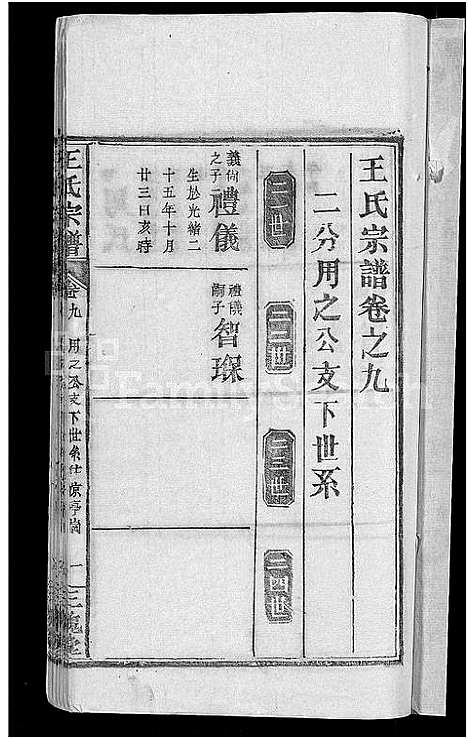 王氏宗譜卷之九
二分用之公支下世系
二一世
二二世
二三世
二四世
義尚之子
禮儀
生於光緒二
十五年十月
廿三日亥時
禮儀嗣子
智琛
王氏宗譜
卷九
用之公支下世系
一
三槐堂
FamilySearch